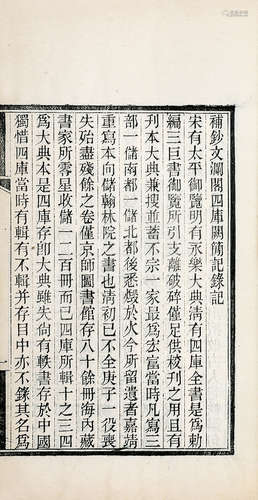 補鈔文瀾閣四庫闕簡記錄記
宋有太平御覽明有永樂大典清有四庫全書是爲勅
編三巨書御覽所引支離破碎僅足供校刊之用且有
刊本大典兼搜並蓄不宗一家最爲宏富當時凡寫三
部一儲南都一儲北都後悉燬於火今所留遺者嘉靖
重寫本向儲翰林院之書也淸初已不全庚子一役喪
失殆盡殘餘之卷僅京師圖書館存八十餘冊海內藏
書家所零星收儲一二百冊而已四庫所輯十之三四
爲大典本是四庫存卽大典雖失尙有軼書存於中國
獨惜四庫當時有輯有不輯幷存目中亦不錄其名爲